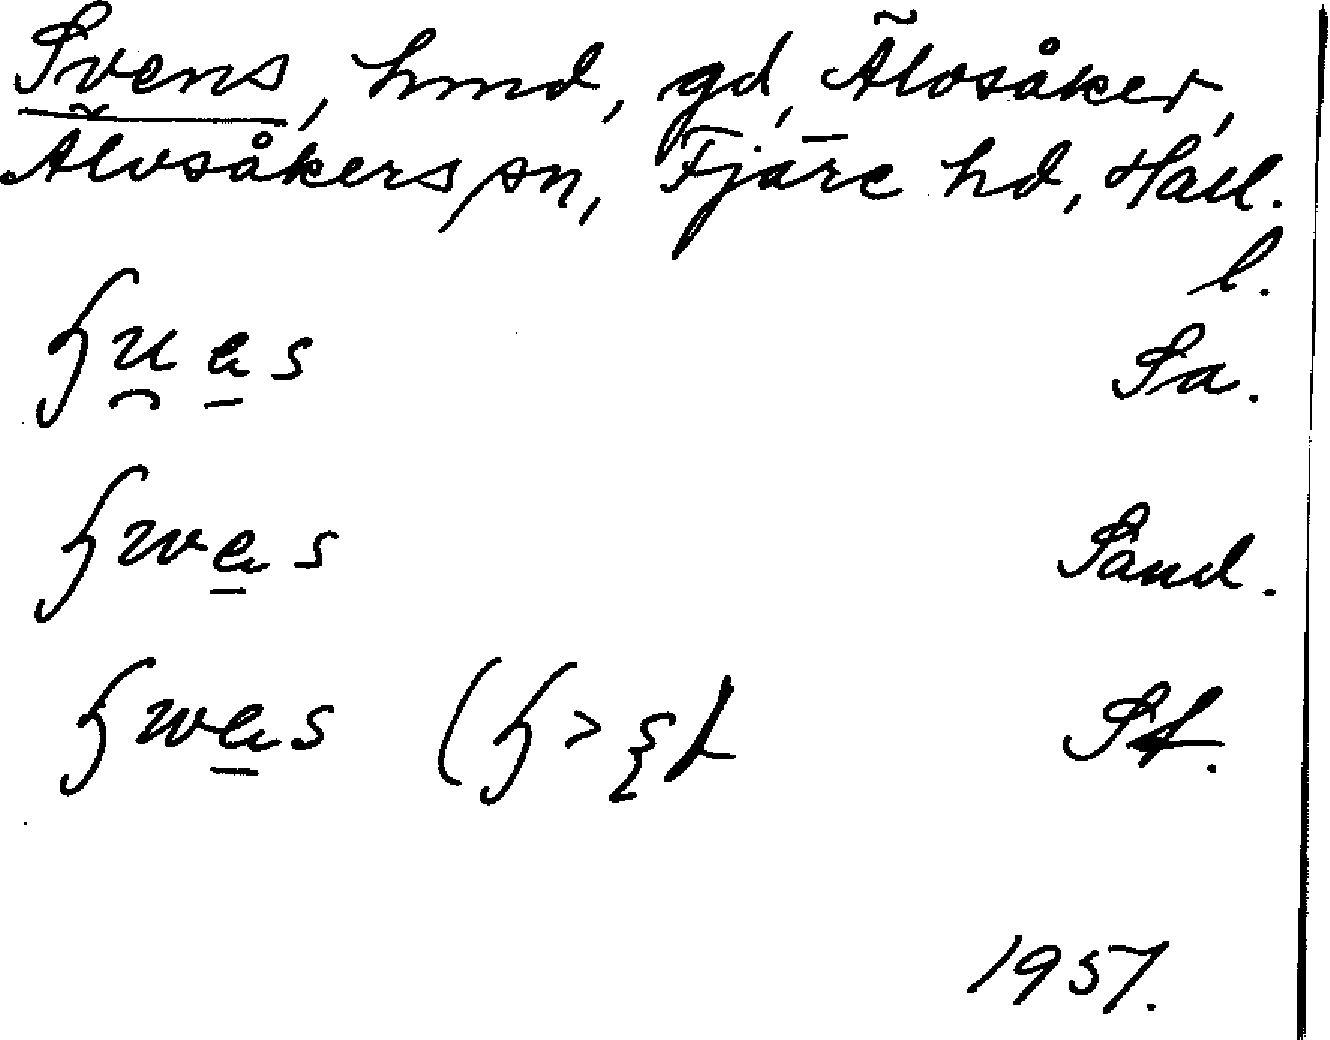 Svens, hmd, gd, Älvsåker,
Älvsåkers sn, Fjäre hd, Hall.
l.
ɧu̯e̱s Sa.
ɧwe̱s Sand.
ɧwe̱s (ɧ > Sf.
1951.